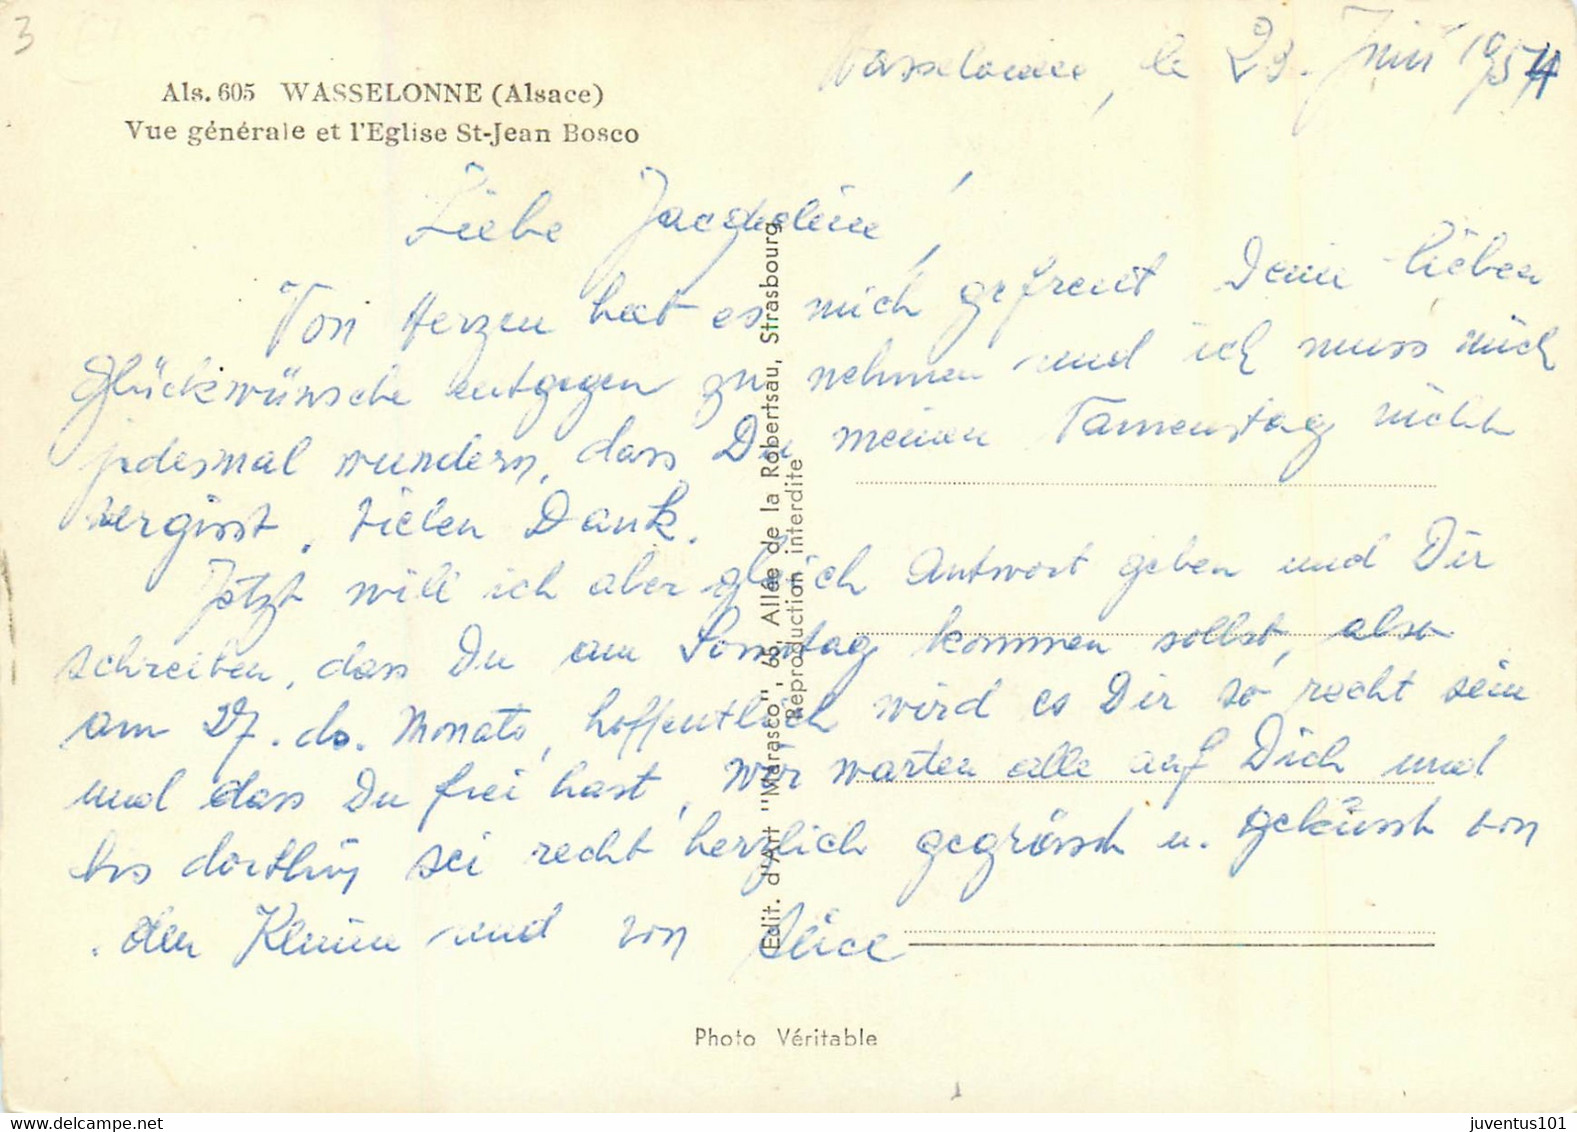 3
Als. 605 WASSELONNE (Alsace)
Vue générale et l'Eglise St-Jean Bosco
Wasselonne, le 23. Juni 1954
Liebe Jacqueline,
Von Herzen hat es mich gefreut Deine lieben
Glückwünsche entgegen zu nehmen und ich muss mich
jedesmal wundern, dass Du meinen Namenstag nicht
vergisst. Vielen Dank.
Jetzt will ich aber gleich Antwort geben und Dir
schreiben, dass Du am Sonntag kommen sollst, also
am 27. ds. Monats, hoffentlich wird es Dir so recht sein
und dass Du frei hast, wir warten alle auf Dich und
bis dorthin sei recht herzlich gegrüsst u. geküsst von
den Kleinen und von Alice
Edit. d'Art "Marasco", 65, Allée de la Robertsau, Strasbourg
Reproduction interdite
Photo Véritable
juventus101